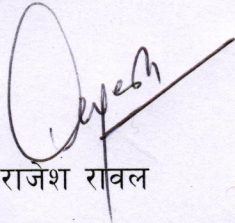 राजेश रावल